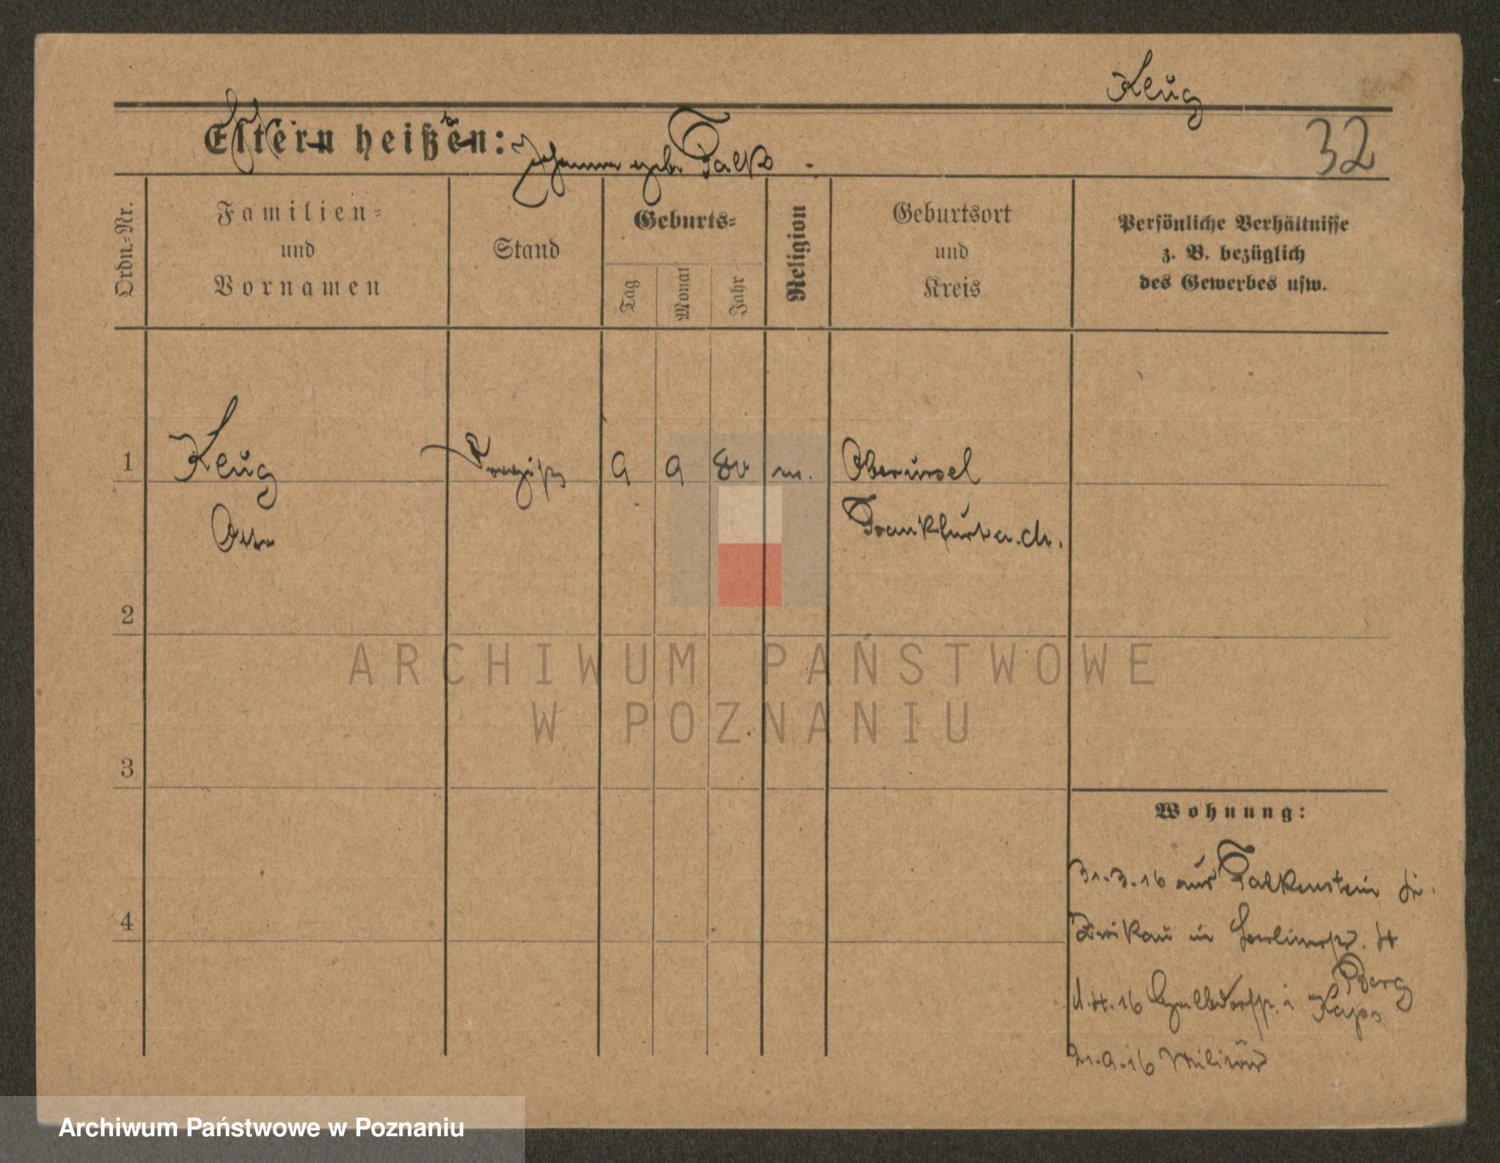 Klug
32
Eltern heißen:
Johanna geb. Falk
Ordn.-Nr.
Familien-
und
Vornamen
Stand
Geburts-
Tag
Monat
Jahr
Religion
Geburtsort
und
Kreis
Persönliche Verhältnisse
z. B. bezüglich
des Gewerbes usw.
1
Klug
9 9 80 m. Oberursel
Otto
Frankfurt a. M.
2
ARCHIWUM PAŃSTWOWE
W POZNANIU
3
Wohnung:
31.3.16 aus Falkenstein
4
Zwikau in
Berg
4.16
21.9.16 Militär
Archiwum Państwowe w Poznaniu